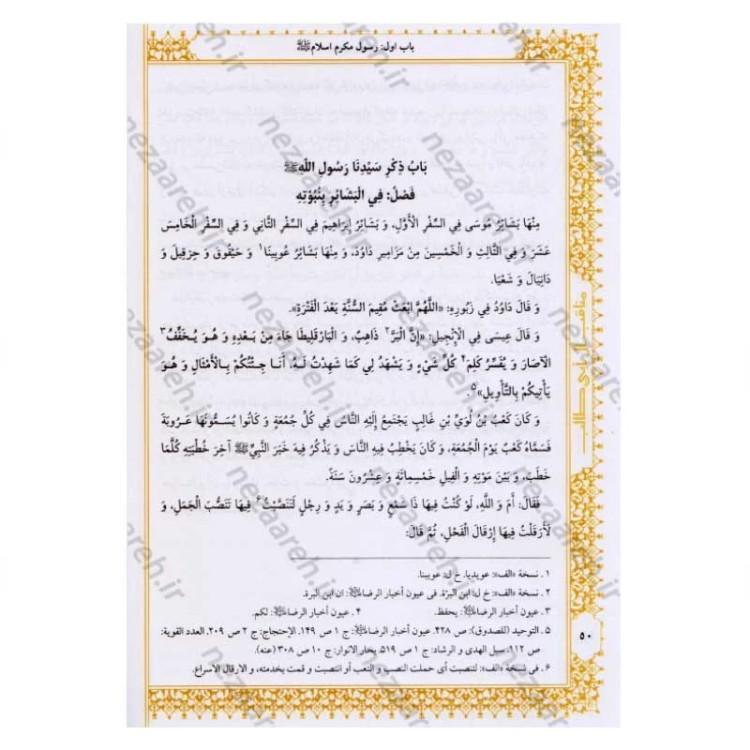 باب اول: رسول مکرم اسلامﷺ
بَابُ ذِكْرِ سَيِّدِنَا رَسُولِ اللهِﷺ
فَصْلٌ: فِي الْبَشَائِرِ بِنُبُوَّتِهِ
مِنْهَا بَشَائِرُ مُوسَى فِي السِّفْرِ الْأَوَّلِ، وَ بَشَائِرُ إِبْرَاهِيمَ فِي السِّفْرِ الثَّانِي وَ فِي السِّفْرِ الْخَامِسَ
عَشَرَ وَ فِي الثَّالِثِ وَ الْخَمْسِينَ مِنْ مَزَامِيرِ دَاوُدَ، وَ مِنْهَا بَشَائِرُ عُوبِينَا١ وَ حَبْقُوقَ وَ حِزْقِيلَ وَ
دَانِيَالَ وَ شَعْيَا.
وَ قَالَ دَاوُدُ فِي زَبُورِهِ: «اللَّهُمَّ ابْعَثْ مُقِيمَ السُّنَّةِ بَعْدَ الْفَتْرَةِ».
وَ قَالَ عِيسَى فِي الْإِنْجِيلِ: «إِنَّ الْبَرَّ٢ ذَاهِبٌ، وَ الْبَارْقَلِيطَا جَاءَ مِنْ بَعْدِهِ وَ هُوَ يُخَفِّفُ٣
الْآصَارَ وَ يُفَسِّرُ كَلِمَ٤ كُلَّ شَيْءٍ وَ يَشْهَدُ لِي كَمَا شَهِدْتُ لَهُ، أَنَا جِئْتُكُمْ بِالْأَمْثَالِ وَ هُوَ
يَأْتِيكُمْ بِالتَّأْوِيلِ»٥.
وَ كَانَ كَعْبُ بْنُ لُوَيِّ بْنِ غَالِبٍ يَجْتَمِعُ إِلَيْهِ النَّاسُ فِي كُلِّ جُمُعَةٍ وَ كَانُوا يُسَمُّونَهَا عَرُوبَةَ
فَسَمَّاهُ كَعْبٌ يَوْمَ الْجُمُعَةِ، وَ كَانَ يَخْطُبُ فِيهِ النَّاسَ وَ يَذْكُرُ فِيهِ خَبَرَ النَّبِيِّﷺ آخِرَ خُطْبَتِهِ كُلَّمَا
خَطَبَ، وَ بَيْنَ مَوْتِهِ وَ الْفِيلِ خَمْسُمِائَةٍ وَ عِشْرُونَ سَنَةً.
فَقَالَ: أَمَ وَ اللهِ، لَوْ كُنْتُ فِيهَا ذَا سَمْعٍ وَ بَصَرٍ وَ يَدٍ وَ رِجْلٍ لَتَنَصَّبْتُ٦ فِيهَا تَنَصُّبَ الْجَمَلِ، وَ
لَأَرْقَلْتُ فِيهَا إِرْقَالَ الْفَحْلِ، ثُمَّ قَالَ:
١ . نسخة «الف»: عویدیا. خ ل: عوبینا.
٢ . نسخة «الف»: خ ل: ابن البرّة. فی عیون أخبار الرضاﷺ: ان ابن البرة.
٣ . عیون أخبار الرضاﷺ: یحفظ. ٤ . عیون أخبار الرضاﷺ: لکم.
٥ . التوحید (للصدوق): ص ٤٢٨. عیون أخبار الرضاﷺ: ج ١ ص ١٤٩. الإحتجاج: ج ٢ ص ٢٠٩. العدد القویة:
ص ١١٢. سبل الهدی و الرشاد: ج ١ ص ٥١٩. بحار الانوار: ج ١٠ ص ٣٠٨ (عنه).
٦ . فی نسخة «الف»: لتنصبت أی حملت النصب و التعب أو انتصبت و قمت بخدمته، و الارقال الاسراع.
٥٠
nezaareh.ir